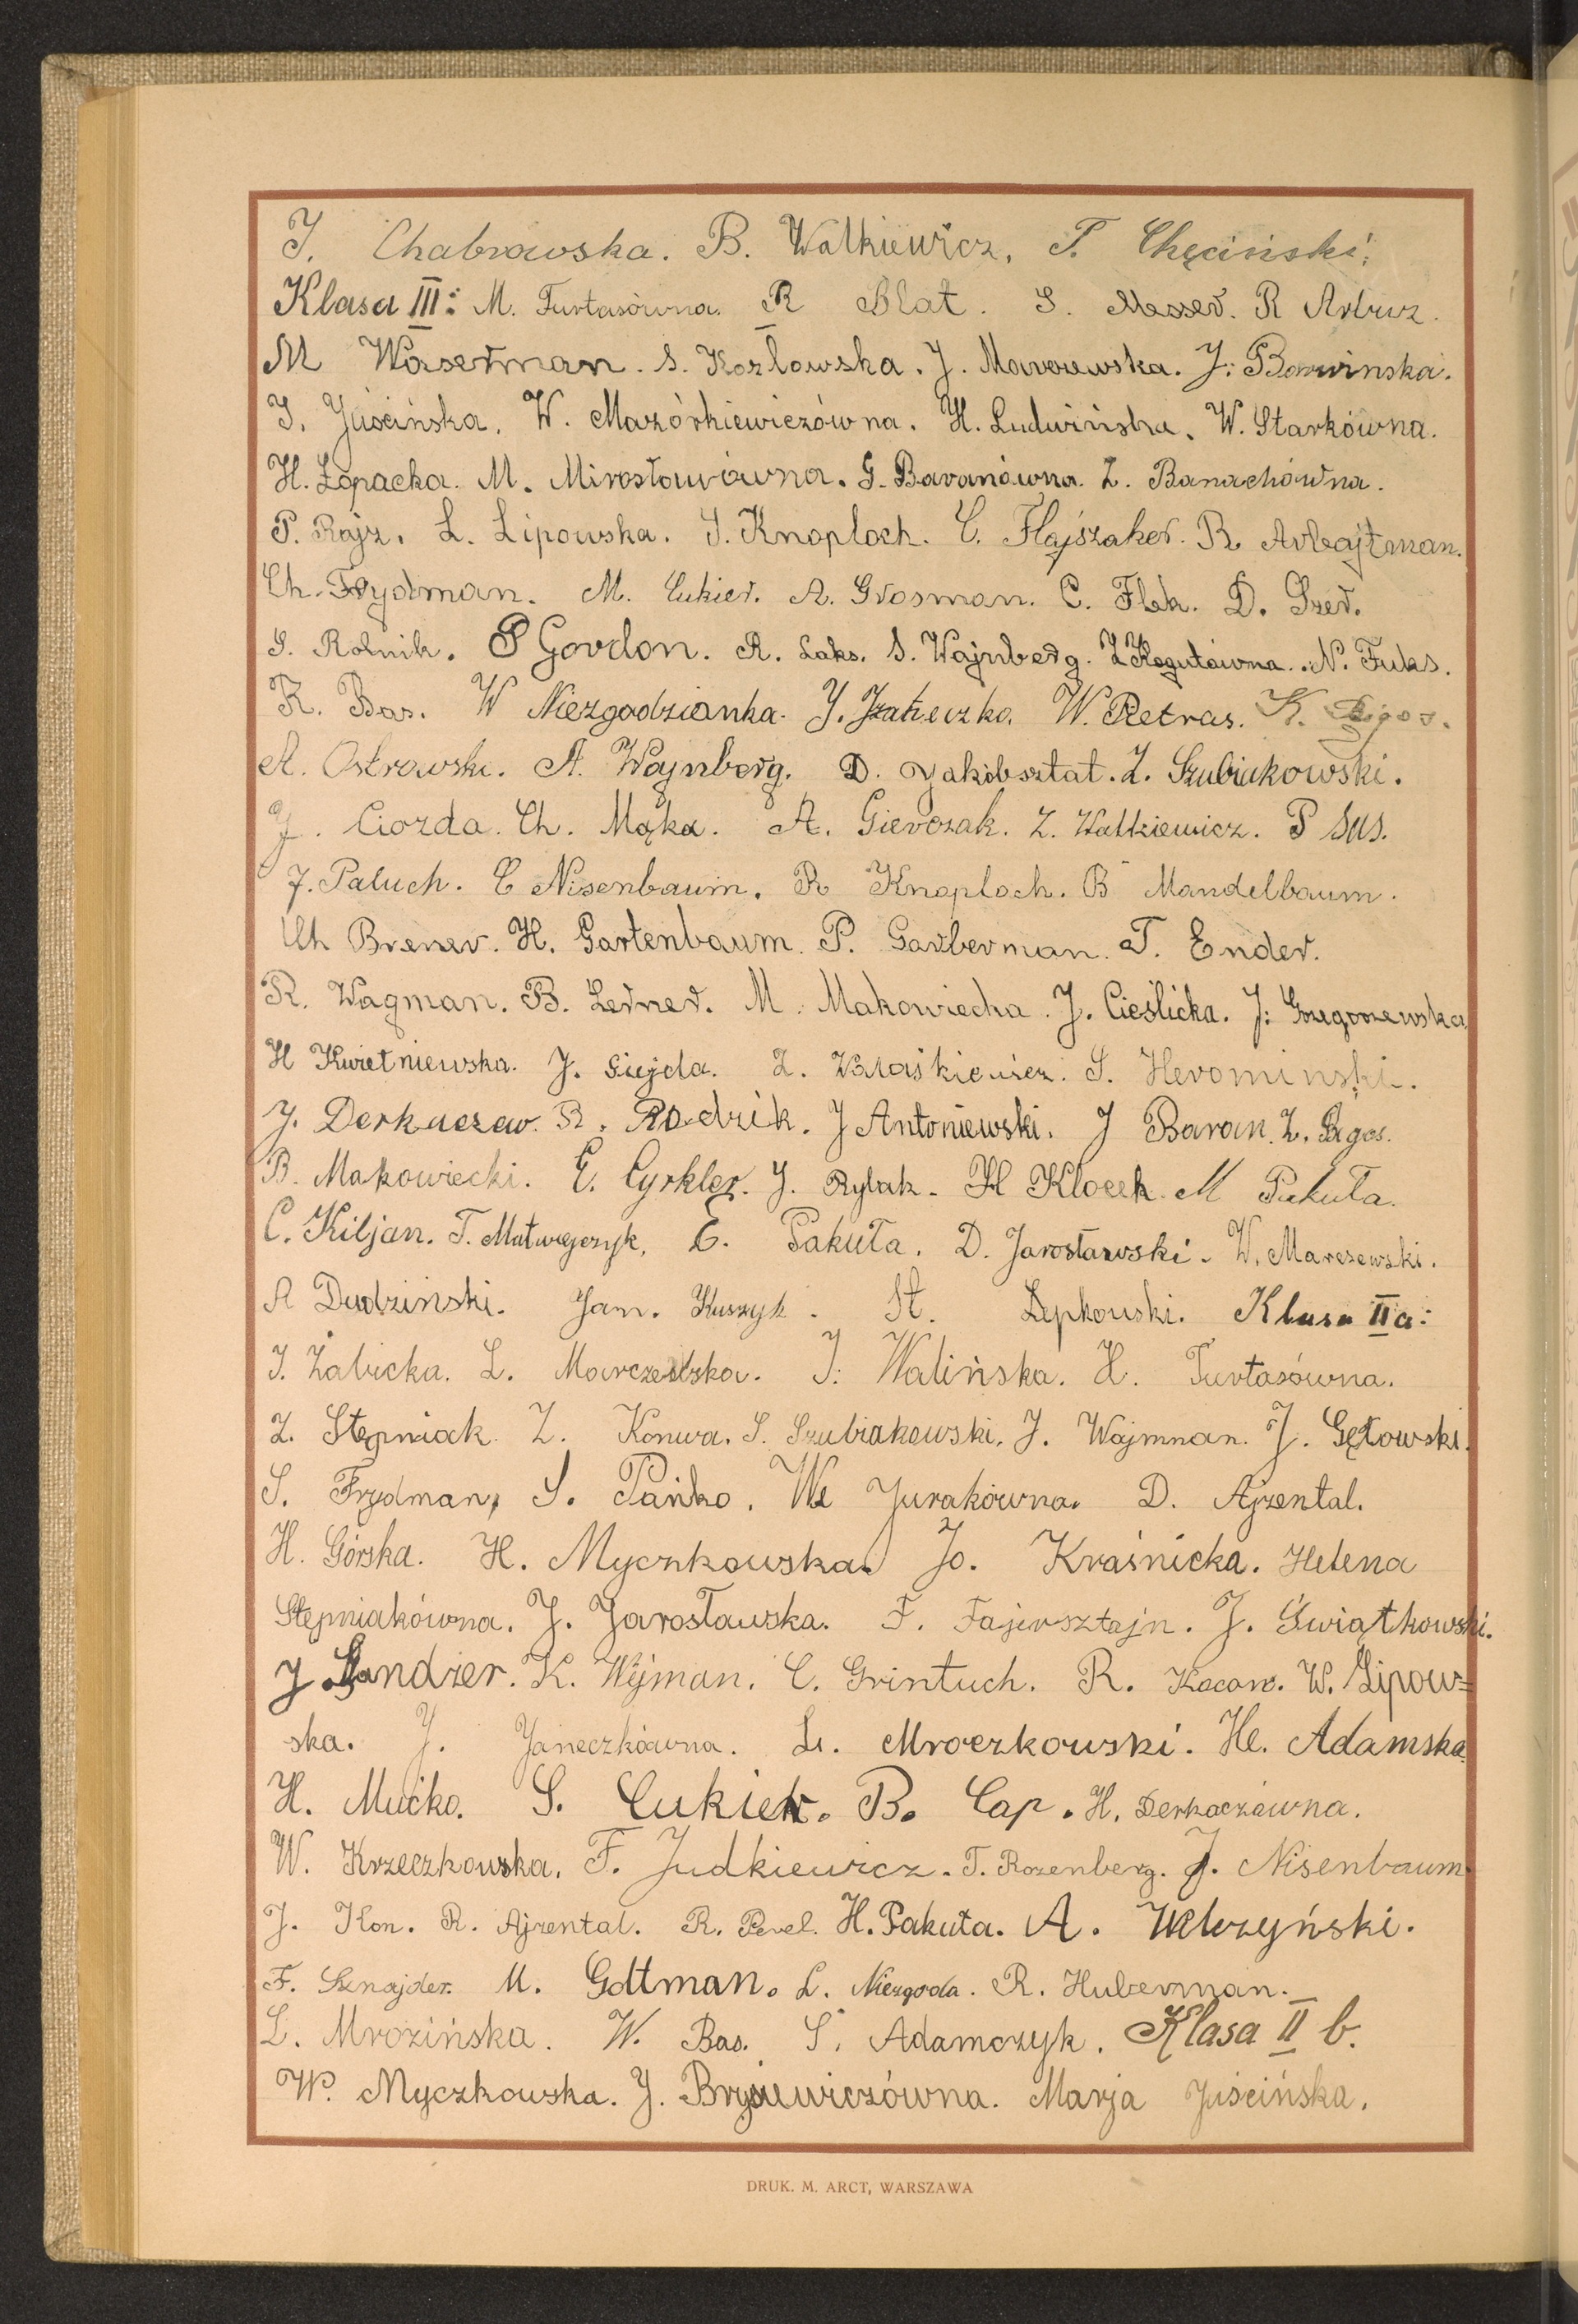 J. Chabrowska. B. Walkiewicz. T. Chęciński.
Klasa III: M. Furtasówna. R Blat. S. Messer. R Arbuz.
M Waserman. S. Kozlowska. J. Marczewska. J. Barwinska.
J. Juścińska. W. Mazórkiewiczówna. H. Ludwińska. W. Starkówna.
H. Łopacka. M. Mirosławówna. G. Baranówna. Z. Banachówna.
P. Rajz. L. Lipowska. S. Knoploch. C. Flajszaker. R Arbajtman.
Ch. Frydman. M. Cukier. A. Grosman. C. Flek. D. Szer.
S. Rolnik. P Gordon. R. Laks. S. Wajnberg. Z Kogutówna. N. Fuks.
R. Bas. W Niezgodzianka. J. W. Pietras. K.
A. Ostrowski. A. Wajnberg. D. Jakóbsztat. Z. Szubiakowski.
J. Ciozda. Ch. Mąka. A. Gierczak. Z. Walkiewicz. P Sus.
J. Paluch. C Nisenbaum. R Knoploch. B Mandelbaum.
Ch Brener. H. Gartenbaum. P. Garberman. T. Ender.
R. Wagman. B. Lerner. M. Makowiecka. J. Cieślicka. J. Grzegorzewska
H Kwietniewska. J. Giejda. Z. S. Herominski.
J. Derkaczew. R. Rodzik. J Antoniewski. J Baran. Z.
B. Makowiecki. E. Cyrkler. J. Rylak. H Klocek. M Pakuła.
C. Kiljan. T. Matwiejczyk. E. Pakuła. D. Jarosławski. W. Marczewski.
A Dudziński. Jan. Kuszyk. St. Lepkowski. Klasa IIa:
J. Żabicka. L. Marczewska. J. Walińska. H. Furtasówna.
Z. Stępniak. Z. Konwa. S. Szubiakowski. J. Wajmnan. J. Gętowski.
S. Frydman, S. Pańko. Wł Jurakówna. D. Ajzental.
H. Górska. H. Myczkowska. Jo. Kraśnicka. Helena
Stępniakówna. J. Jarosławska. F. Fajersztajn. J. Świątkowski.
J Sandzer. K. Wejman. C. Grintuch. R. Kocow. W. Lipow=
ska. J. Janeczkówna. Lu. Mroczkowski. He. Adamska
H. Mućko. S. Cukier. B. Cap. H. Derkaczówna.
W. Krzeczkowska. F. Judkiewicz. T. Rozenberg. J. Nisenbaum.
J. Kon. R. Ajzental. R. Perel. H. Pakuła. A. Wilczyński.
F. Sznajder. M. Gottman. L. Niezgoda. R. Huberman.
L. Mrozińska. W. Bas. S. Adamczyk. Klasa II b.
W. Myczkowska. J. Brysiewiczówna. Marja Juścińska.
DRUK. M. ARCT, WARSZAWA